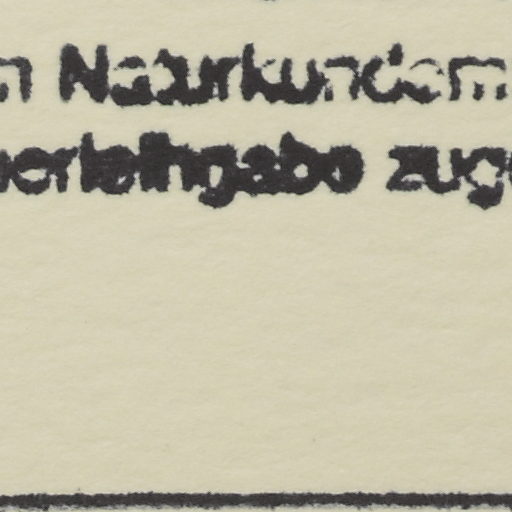 n Naturkundem
erleihgabe zuge